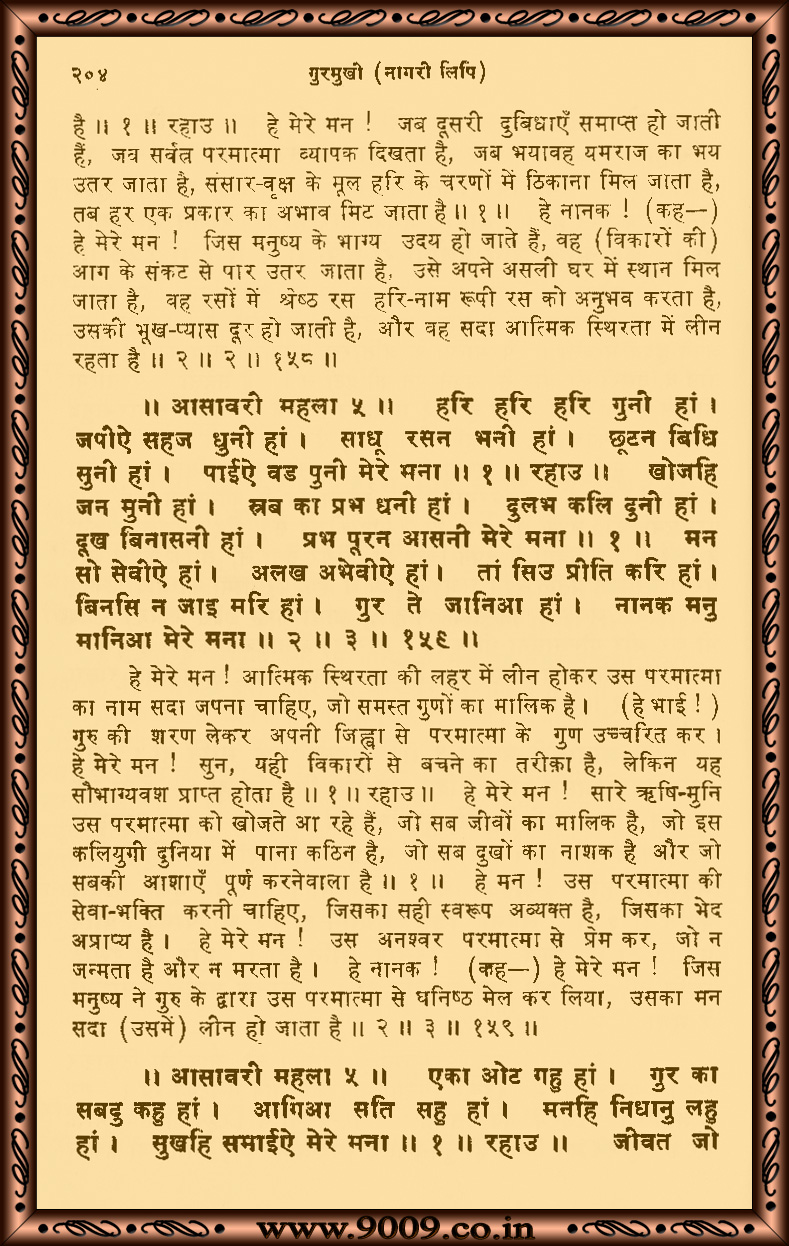 २०४ गुरमुखी (नागरी लिपि)
है ॥ १ ॥ रहाउ ॥ हे मेरे मन ! जब दूसरी दुबिधाएँ समाप्त हो जाती
हैं, जब सर्वत्र परमात्मा व्यापक दिखता है, जब भयावह यमराज का भय
उतर जाता है, संसार-वृक्ष के मूल हरि के चरणों में ठिकाना मिल जाता है,
तब हर एक प्रकार का अभाव मिट जाता है ॥ १ ॥ हे नानक ! (कह—)
हे मेरे मन ! जिस मनुष्य के भाग्य उदय हो जाते हैं, वह (विकारों की)
आग के संकट से पार उतर जाता है, उसे अपने असली घर में स्थान मिल
जाता है, वह रसों में श्रेष्ठ रस हरि-नाम रूपी रस को अनुभव करता है,
उसकी भूख-प्यास दूर हो जाती है, और वह सदा आत्मिक स्थिरता में लीन
रहता है ॥ २ ॥ २ ॥ १५८ ॥
॥ आसावरी महला ५ ॥ हरि हरि हरि गुनी हां ।
जपीऐ सहज धुनी हां । साधू रसन भनी हां । छूटन बिधि
सुनी हां । पाईऐ वड पुनी मेरे मना ॥ १ ॥ रहाउ ॥ खोजहि
जन मुनी हां । स्रब का प्रभ धनी हां । दुलभ कलि दुनी हां ।
दूख बिनासनी हां । प्रभ पूरन आसनी मेरे मना ॥ १ ॥ मन
सो सेवीऐ हां । अलख अभेवीऐ हां । तां सिउ प्रीति करि हां ।
बिनसि न जाइ मरि हां । गुर ते जानिआ हां । नानक मनु
मानिआ मेरे मना ॥ २ ॥ ३ ॥ १५९ ॥
हे मेरे मन ! आत्मिक स्थिरता की लहर में लीन होकर उस परमात्मा
का नाम सदा जपना चाहिए, जो समस्त गुणों का मालिक है । (हे भाई ! )
गुरु की शरण लेकर अपनी जिह्वा से परमात्मा के गुण उच्चरित कर ।
हे मेरे मन ! सुन, यही विकारों से बचने का तरीक़ा है, लेकिन यह
सौभाग्यवश प्राप्त होता है ॥ १ ॥ रहाउ ॥ हे मेरे मन ! सारे ऋषि-मुनि
उस परमात्मा को खोजते आ रहे हैं, जो सब जीवों का मालिक है, जो इस
कलियुगी दुनिया में पाना कठिन है, जो सब दुखों का नाशक है और जो
सबकी आशाएँ पूर्ण करनेवाला है ॥ १ ॥ हे मन ! उस परमात्मा की
सेवा-भक्ति करनी चाहिए, जिसका सही स्वरूप अव्यक्त है, जिसका भेद
अप्राप्य है । हे मेरे मन ! उस अनश्वर परमात्मा से प्रेम कर, जो न
जन्मता है और न मरता है । हे नानक ! (कह—) हे मेरे मन ! जिस
मनुष्य ने गुरु के द्वारा उस परमात्मा से घनिष्ठ मेल कर लिया, उसका मन
सदा (उसमें) लीन हो जाता है ॥ २ ॥ ३ ॥ १५९ ॥
॥ आसावरी महला ५ ॥ एका ओट गहु हां । गुर का
सबदु कहु हां । आगिआ सति सहु हां । मनहि निधानु लहु
हां । सुखहि समाईऐ मेरे मना ॥ १ ॥ रहाउ ॥ जीवत जो
www.9009.co.in